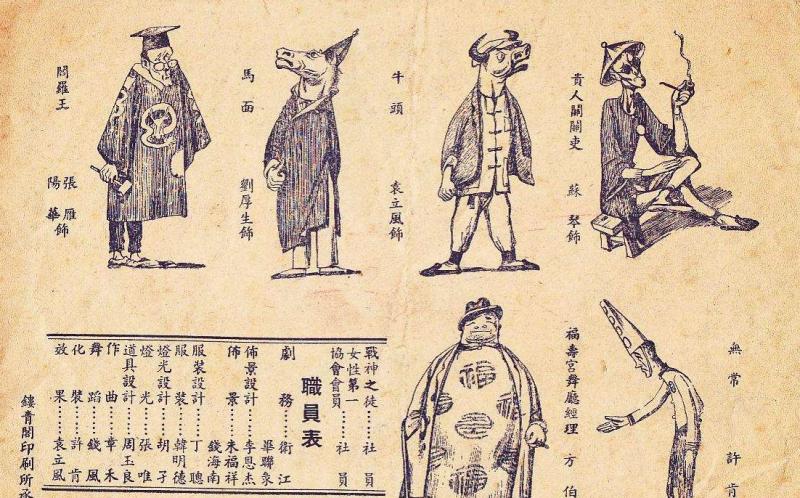 貴人關關吏 蘇琴飾
牛頭 袁立風飾
馬面 劉厚生飾
閻羅王 張雁飾
陽華
無常 許肯
福壽宮舞廳經理 方伯
戰神之徒……社員
女性第一
協會會員……社員
職員表
劇務……衛江
畢聯衆
佈景設計……李恩杰
佈景……朱福祥
錢海南
服裝設計……丁聰
服裝……韓明德
燈光設計……胡子
燈光……張唯
道具設計……周玉良
作曲……章禾
舞蹈……錢風
化裝……許肯
效果……袁立風
鏤青閣印刷所承